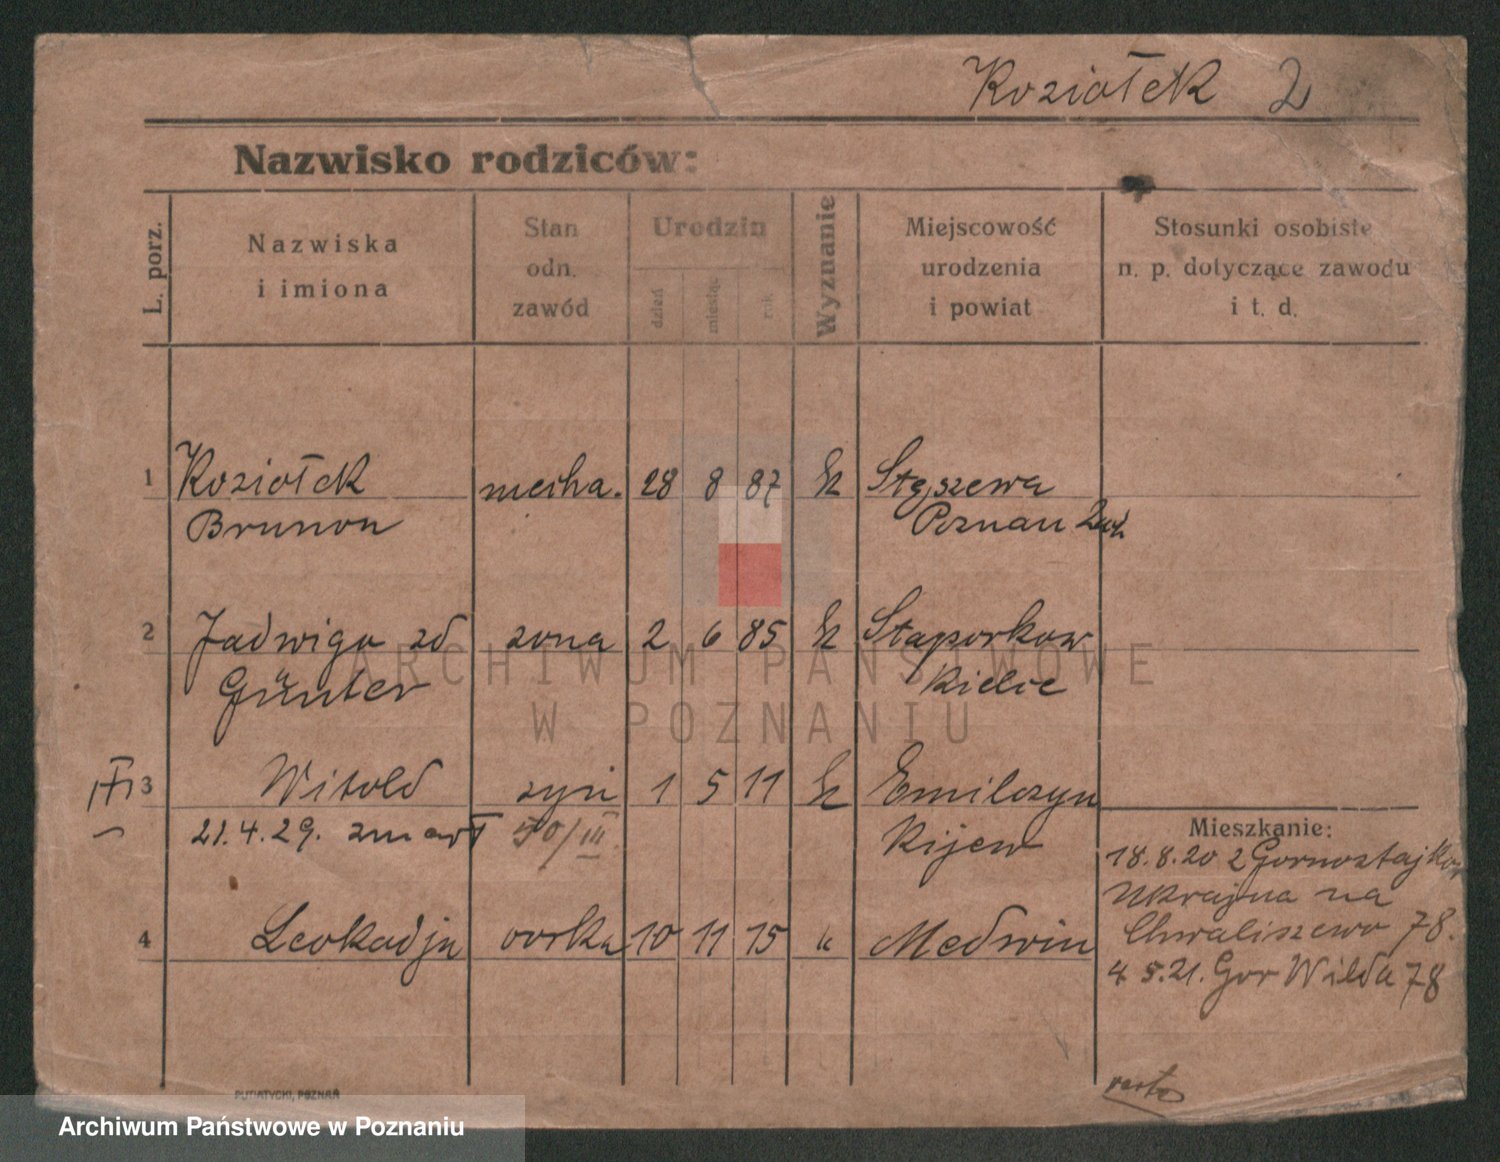 Koziołek 2
Nazwisko rodziców:
L. porz.
Nazwiska
i imiona
Stan
odn.
zawód
Urodzin
dzień
miesiąc
rok
Wyznanie
Miejscowość
urodzenia
i powiat
Stosunki osobiste
n. p. dotyczące zawodu
i t. d.
1 Koziołek mecha. 28 8 87 Stęszewa
Brunon Poznań Zach
2 Jadwiga zd zona 2 6 85 Staporkow
Günter Kielce
3 Witold syn 1 5 11 Emilczyn
21.4.29. zmarł 50/III. Kijew
4 Leokadja corka 10 11 15 " Medwin
Mieszkanie:
18.8.20 z Gornostajko
Ukrajna na
Chwaliszewo 78.
4 5.21. Gor Wilda 78
verte
PUTIATYCKI, POZNAŃ
ARCHIWUM PAŃSTWOWE
W POZNANIU
Archiwum Państwowe w Poznaniu